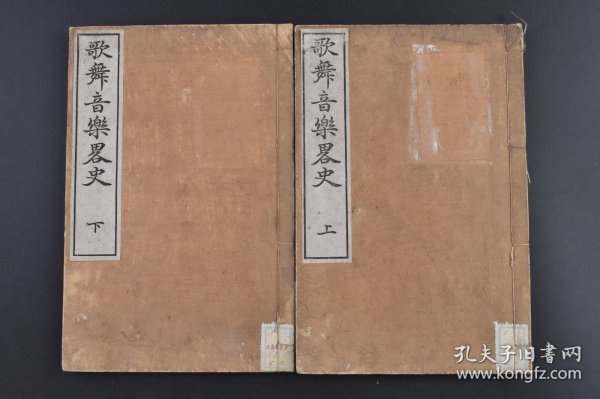 歌舞音樂畧史
下
歌舞音樂畧史
上
孔夫子旧書网
www.kongfz.com